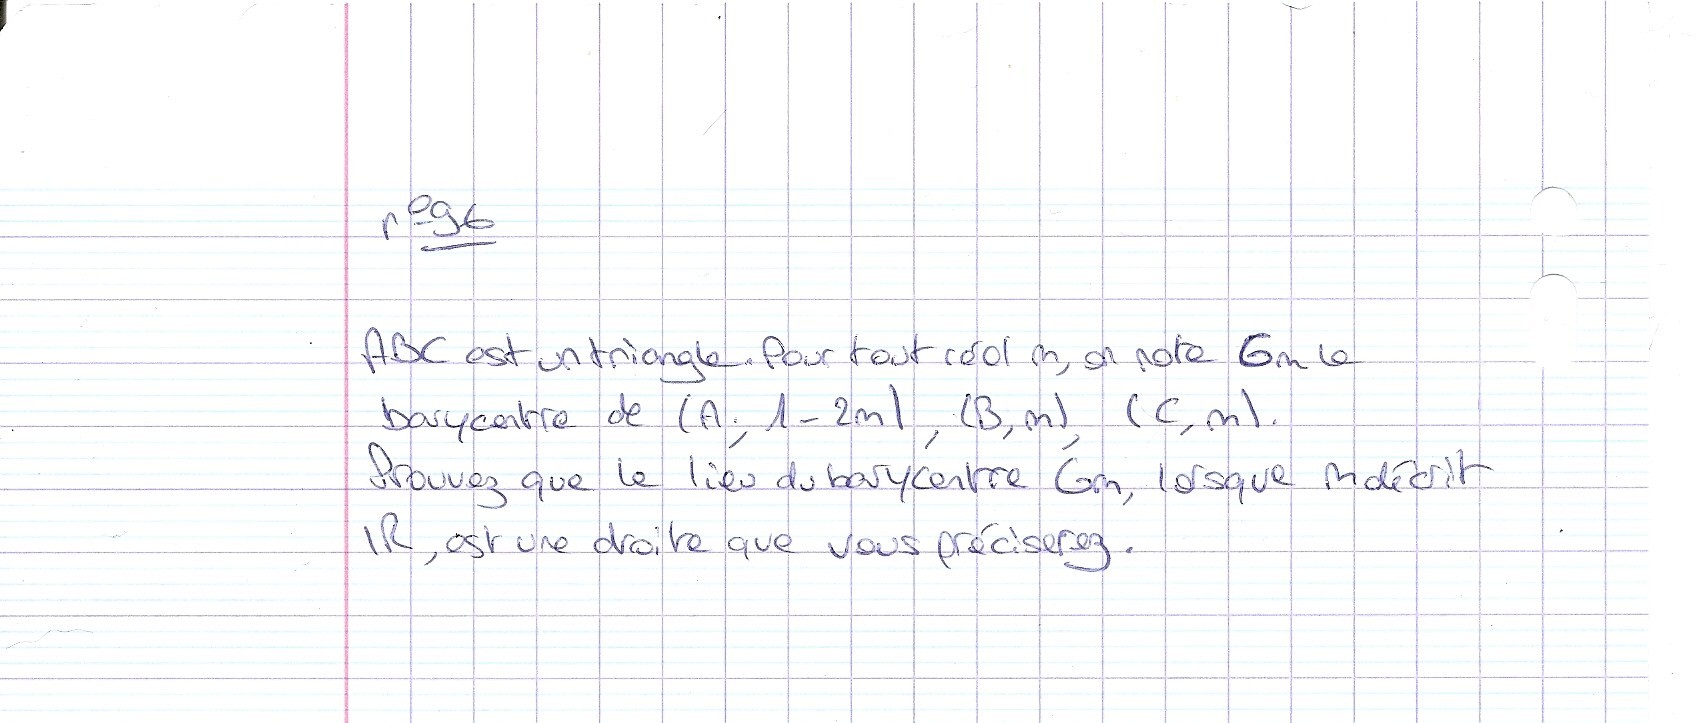 n°96
ABC est un triangle. Pour tout réel m, on note Gm le
barycentre de (A; 1-2m), (B, m), (C, m).
Prouvez que le lieu du barycentre Gm, lorsque m décrit
IR, est une droite que vous préciserez.